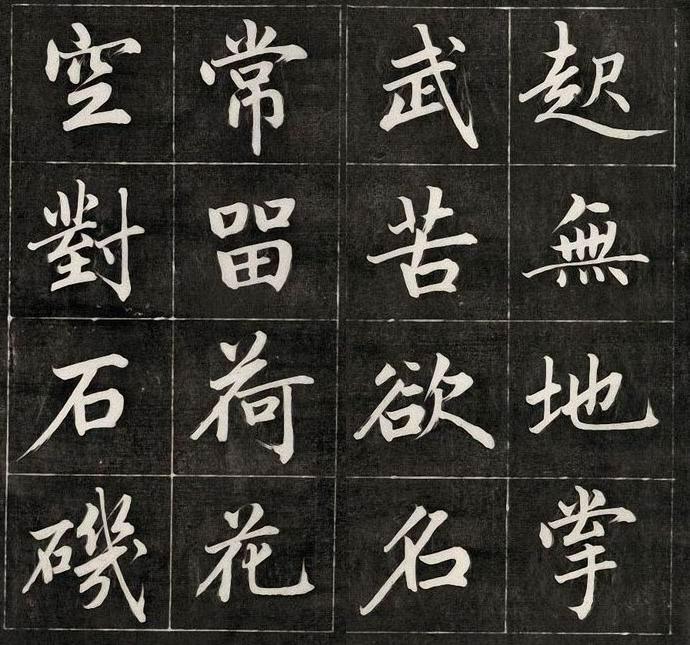 起無地掌
武苦欲名
常留荷花
空對石磯